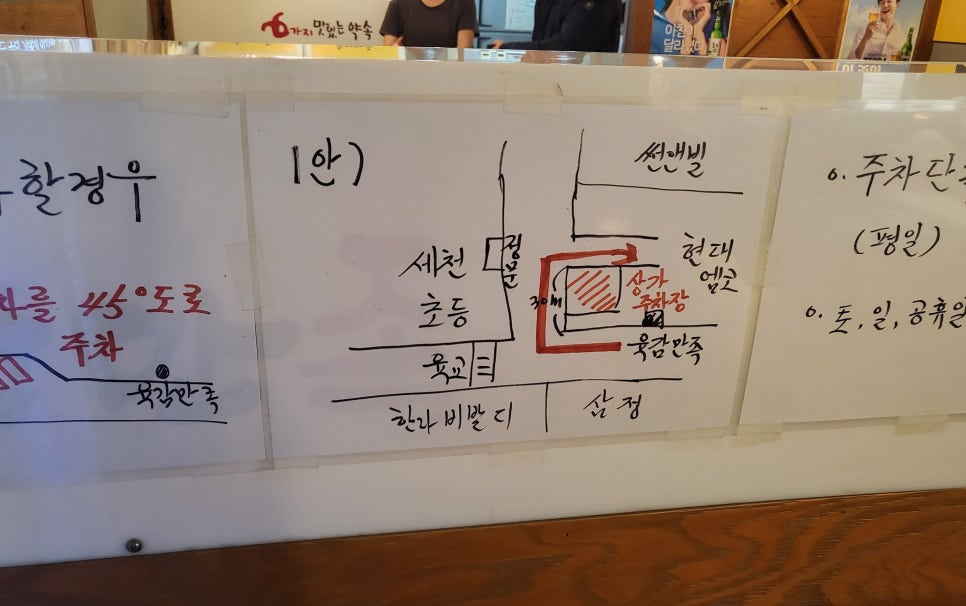 6가지 맛있는 약속
할경우
를 45°도로
주차
육감만족
1안)
썬앤빌
세천
초등
정문
현대
엠코
30m
상가
주차장
육감만족
육교
한라비발디
삼정
o. 주차단
(평일)
o. 토, 일, 공휴일